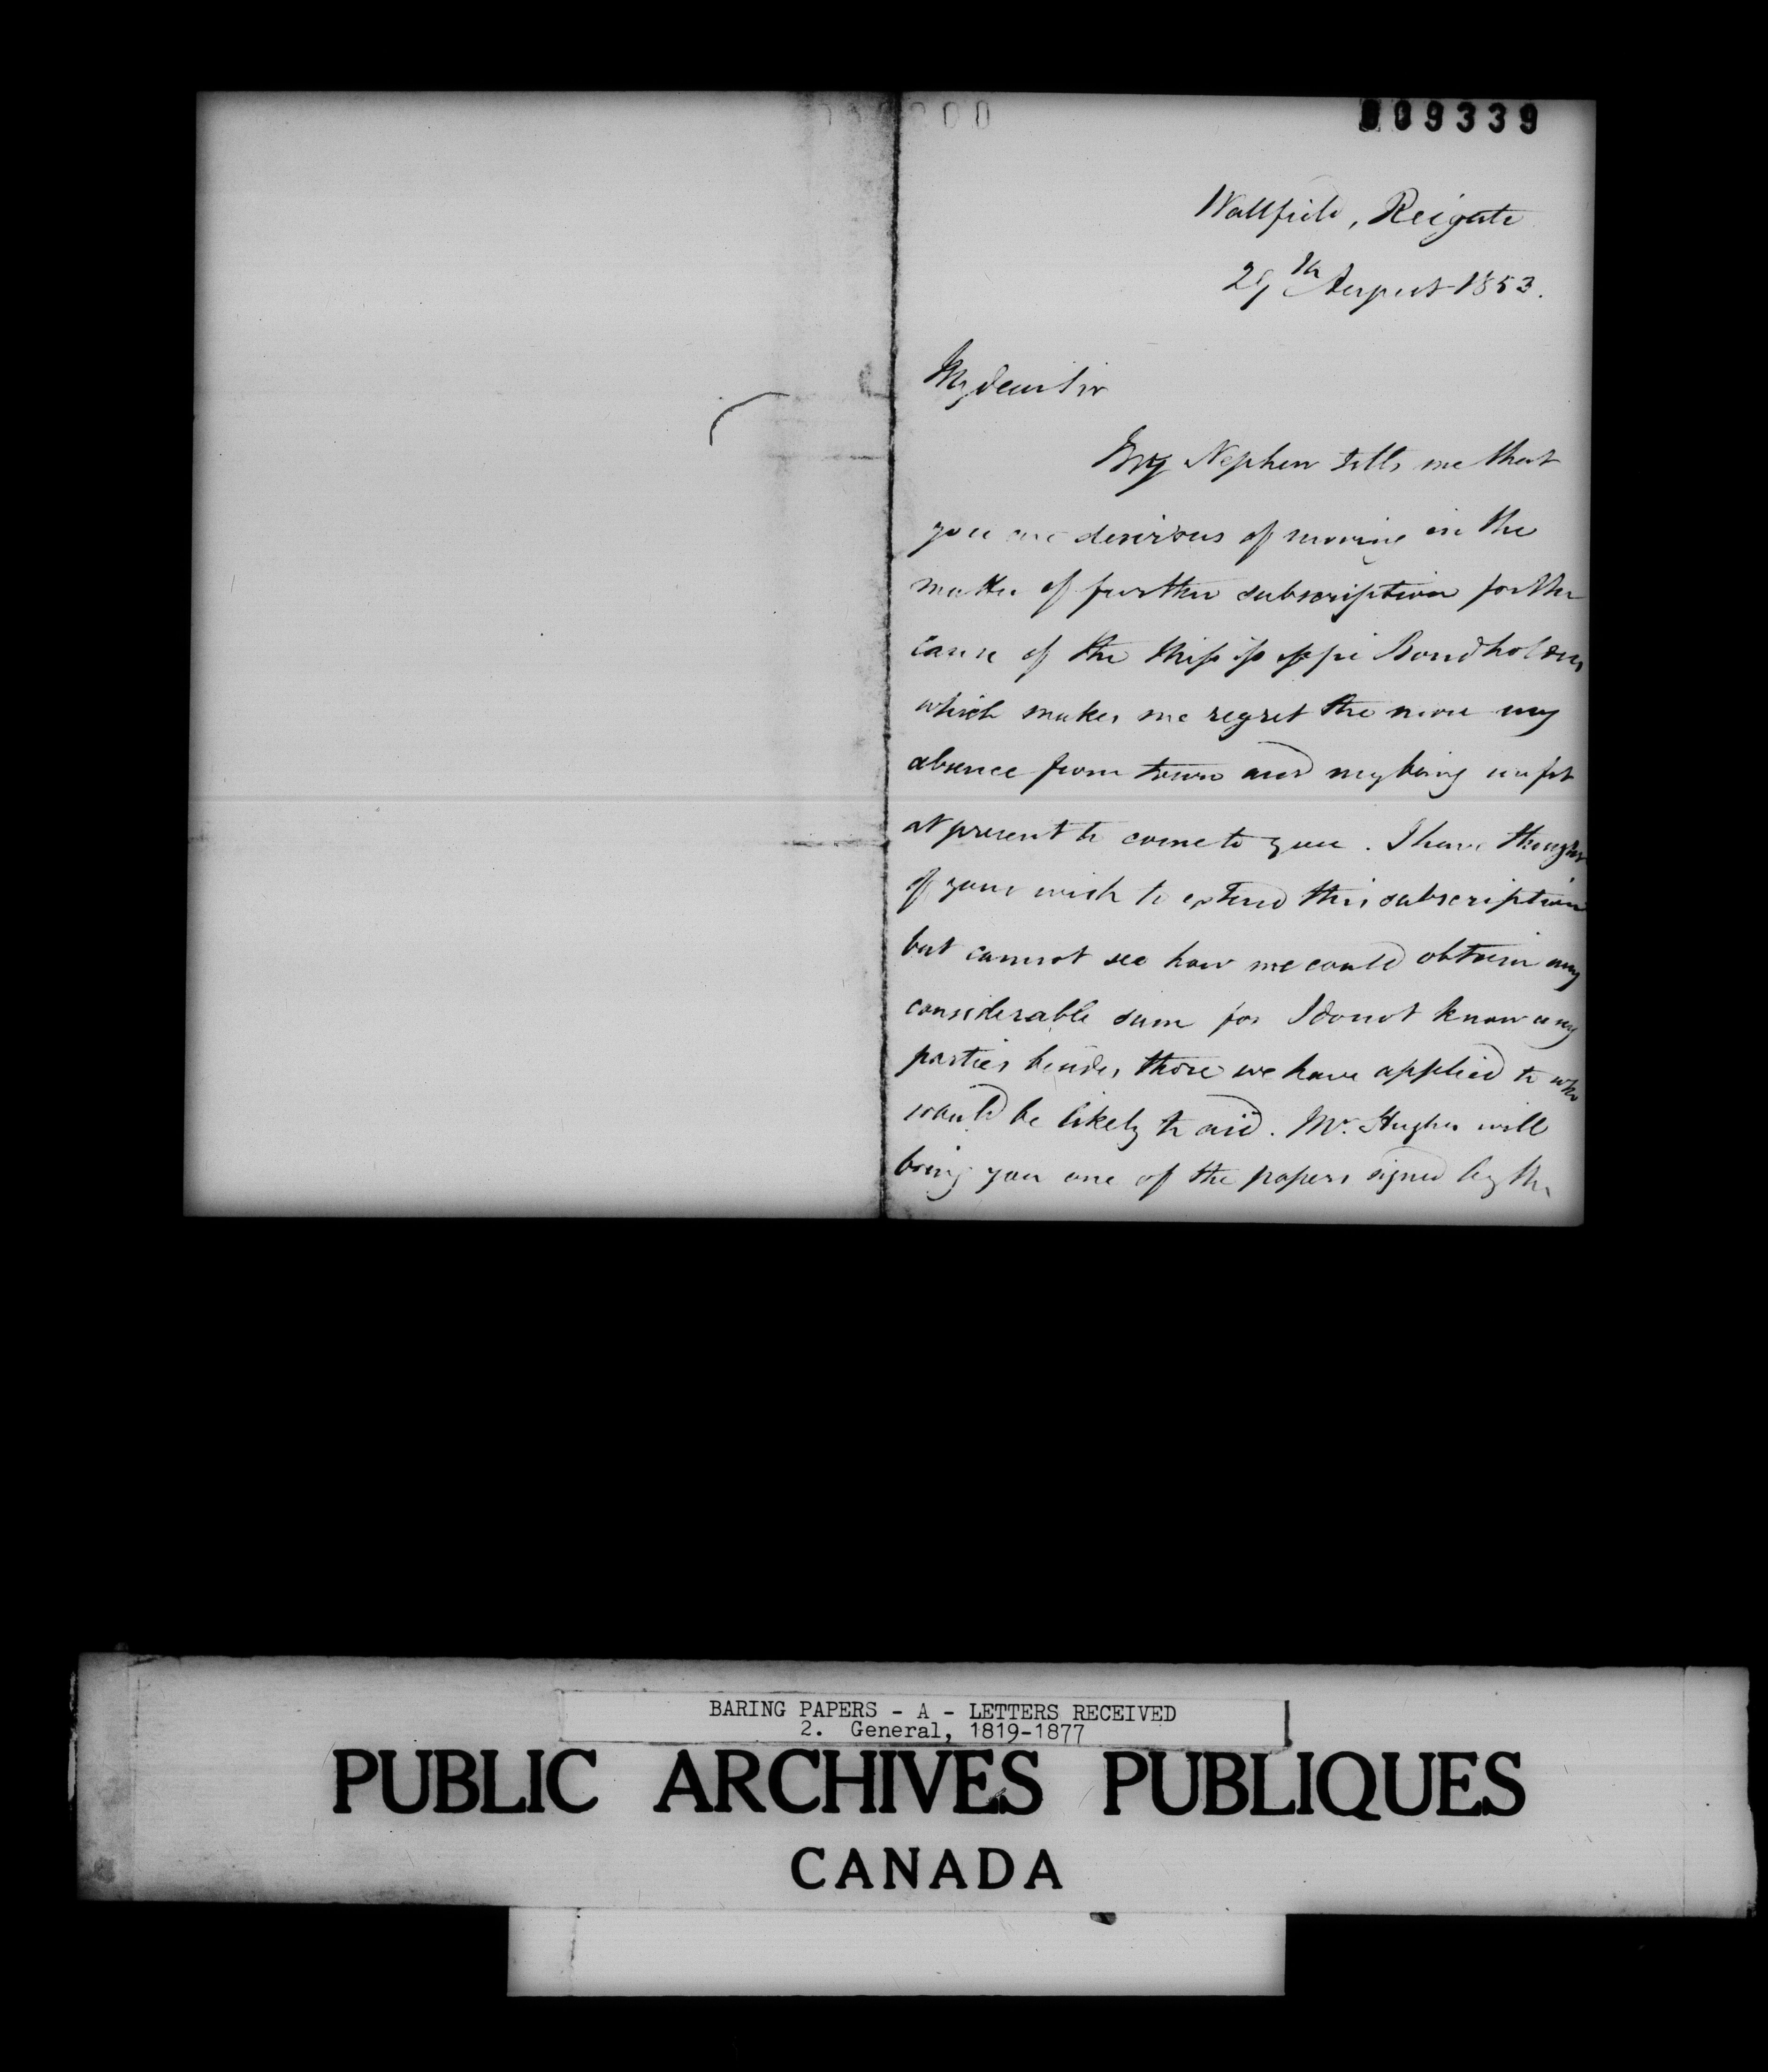 009339
Wallfield, Reigate
29th August 1853.
My dear Sir
My Nephew tells me that
you are desirous of moving in the
matter of further subscription for the
cause of the Mississippi Bondholders
which makes me regret the more my
absence from town and my being unfit
at present to come to you. I have thought
of your wish to extend this subscription
but cannot see how we could obtain any
considerable sum for I do not know any
parties besides those we have applied to who
would be likely to aid. Mr. Hughes will
bring you one of the papers signed by the
BARING PAPERS - A - LETTERS RECEIVED
2. General, 1819-1877
PUBLIC ARCHIVES PUBLIQUES
CANADA